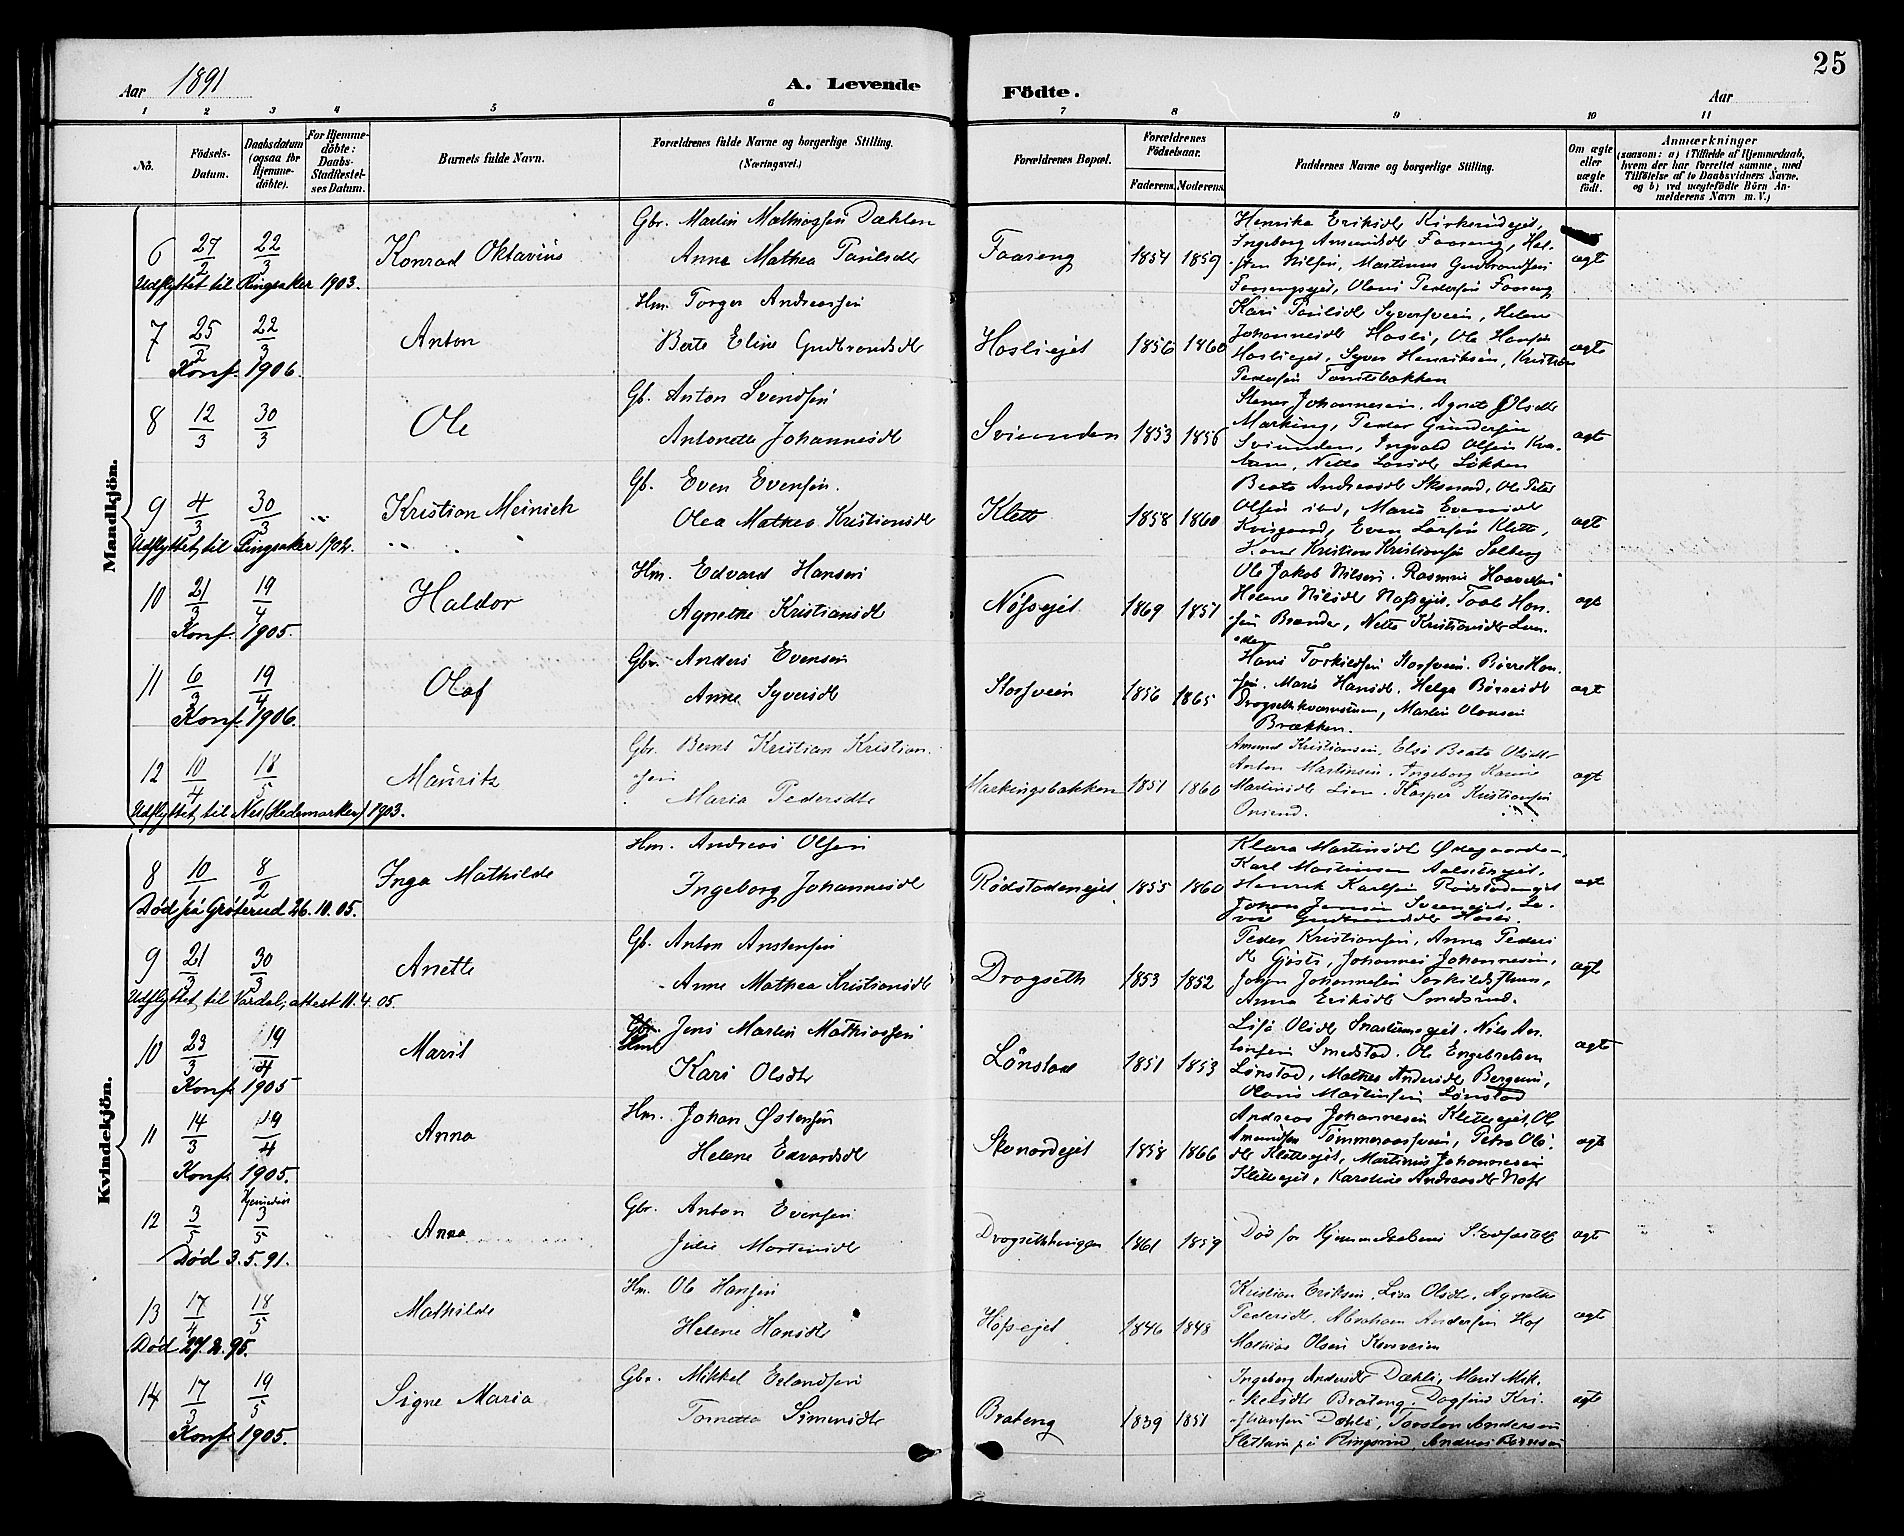 25
Aar 1891 A. Levende Födte. Aar
1 2 3 4 5 6 7 8 9 10 11
No. Födsels-Datum. Daabsdatum (ogsaa for Hjemmedöbte). For Hjemmedöbte: Daabs-Stadfæstelses Datum. Barnets fulde Navn. Forældrenes fulde Navne og borgerlige Stilling. (Næringsvei.) Forældrenes Bopæl. Forældrenes Födselsaar. Faderens. Moderens. Faddernes Navne og borgerlige Stilling. Om ægte eller uægte födt. Anmærkninger (saasom: a) i Tilfælde af Hjemmedaab, hvem der har forrettet samme, med Tilföielse af to Daabsvidners Navne, og b) ved uægtefödte Börn Anmelderens Navn m. V.)
Mandkjön.
6 27/2 22/3 Konrad Oktavius Gbr. Martin Mathiassen Dæhlen
Anne Mathea Paulsdtr Faaseng 1854 1859 ægt
Henrika Eriksdtr Kirkerudejet,
Ingeborg Amundsdtr Faaseng,
Nilsen, Martinus Gudbrandsen
Faasengejet, Olaus Pedersen Faaseng
Udflyttet til Ringsaker 1903.
7 25/2 22/3 Anton Hm. Torger Andreassen
Berte Eline Gudbrandsdtr Hasliejet 1856 1860 ægte
Kari Paulsdtr Syversveen, Helene
Johannesdtr Hasli, Ole Hansen
Hasliejet, Syver Henriksen, Kristian
Pedersen
Konf. 1906.
8 12/3 30/3 Ole Gb. Anton Svendsen
Antonette Johannesdtr Sviunden 1853 1856 ægt
Stener Johannesen, Agnete Olsdtr
Marking, Peder Gundersen
Sviunden, Ingvald Olsen
Nette Larsdtr Løkken
9 4/3 30/3 Kristian Meinich Gb. Even Evensen.
Olea Mathea Kristiansdtr Klette 1858 1860 ægt
Beate Andreasdtr Skonnord, Ole Peter
Olsen ibd, Marie Evensdtr
Even Larsen Klette,
Kristian Kristiansen Solberg
Udflyttet til Ringsaker 1902.
10 21/3 19/4 Haldor Hm. Edvard Hansen
Agnethe Kristiansdtr Nøssejet 1869 1851 ægt
Ole Jakob Nilsen, Rasmus
Helene Nilsdtr Nøssejet,
Brænder, Nette Kristiansdtr
Konf. 1905.
11 6/3 19/4 Olaf Gbr. Anders Evensen
Anne Syversdtr Stossveen 1856 1865 ægt
Hans Torkildsen Stossveen. Børre Han-
sen. Marie Hansdtr. Helga Børresdtr
Martin Olausen
Brækken.
Konf. 1906.
12 10/4 18/5 Mauritz Gbr. Bernt Kristian Kristian-
sen
Maria Pedersdtr Markingsbakken 1851 1860 ægt
Amund Kristiansen, Else Beate Olsdtr
Anton Martinsen. Ingeborg Karin
Martinsdtr Lien. Kasper Kristiansen
Onsrud.
Udflyttet til Nes (Hedemarken) 1903.
Kvindekjön.
8 10/1 8/2 Inga Mathilde Hm. Andreas Olsen
Ingeborg Johannesdtr Rødstadenejet 1855 1860 ægt
Klara Martinsdtr Ødegaarden,
Karl Martinsen
Henrik Karlsen Rødstadenejet
Johan Jensen Sveenejet,
Gudbrandsdtr Hasli.
Død på Grøterud 26.10.05.
9 21/3 30/3 Anette Gb. Anton Anstensen
Anne Mathea Kristiansdtr Drogseth 1853 1852 ægt
Peder Kristiansen, Anna Peders-
dtr Gjøsti, Johannes Johannesen,
Johan Johannesen Torkildsthun,
Anna Eriksdtr Smedsrud.
Udflyttet til Vardal, attest 11.4.05.
10 23/3 19/4 Marit Gbr. Jens Martin Mathiassen
Hm
Kari Olsdtr Lønstad 1851 1853 ægte
Lisa Olsdtr Nils An-
tonsen Smedstad. Ole Engebretsen
Lønstad, Mathea Andersdtr Bergum,
Olaus Martinsen Lønstad
Konf. 1905
11 14/3 19/4 Anna Hm. Johan Østensen
Helene Edvardsdtr Skonordejet 1858 1866 ægt
Andreas Johannesen Kletteejet, Ole
Amundsen Tømmeraasveen, Petra Ols-
dtr Kletteejet, Martinus Johannesen
Kletteejet, Karoline Andreasdtr
Konf. 1905.
12 3/5 Hjemmedøbt 3/5 Anna Gbr. Anton Evensen
Julie Martinsdtr Drogsethhaugen 1861 1859 Død før Hjemmedaabens Stadfæstelse ægt
Død 3.5.91.
13 17/4 18/5 Mathilde Hm. Ole Hansen
Helene Hansdtr Hofsejet 1846 1848 ægt
Kristian Eriksen, Lisa Olsdtr, Agnethe
Pedersdtr. Abraham Andersen Hof
Mathias Olsen
Død 27.2.95.
14 17/3 19/5 Signe Maria Gbr. Mikkel Erlandsen
Tonette Simensdtr Brateng 1839 1851 ægt
Ingeborg Andersdtr Dæhli, Marit Mik-
kelsdtr Brateng. Dagfind Kri-
stiansen Dæhli, Torsten Andersen
Slettum på Ringerud, Andreas Børresen
Konf. 1905.